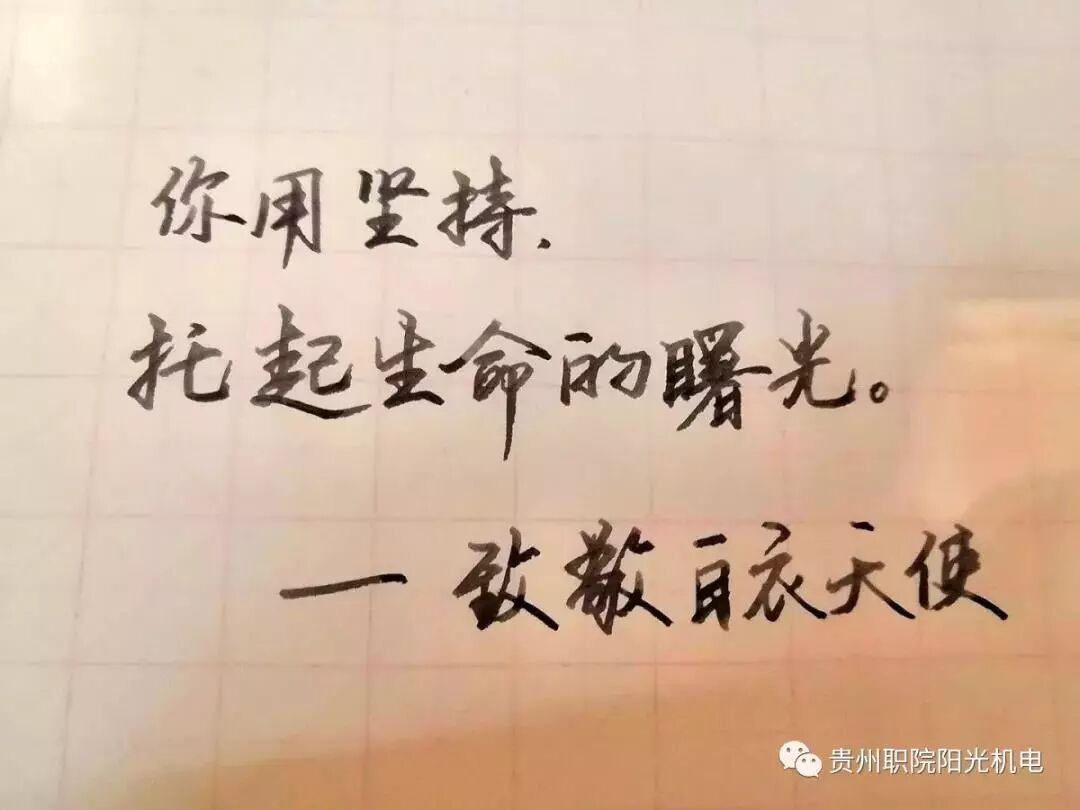 你用坚持、
托起生命的曙光。
— 致敬白衣天使
贵州职院阳光机电